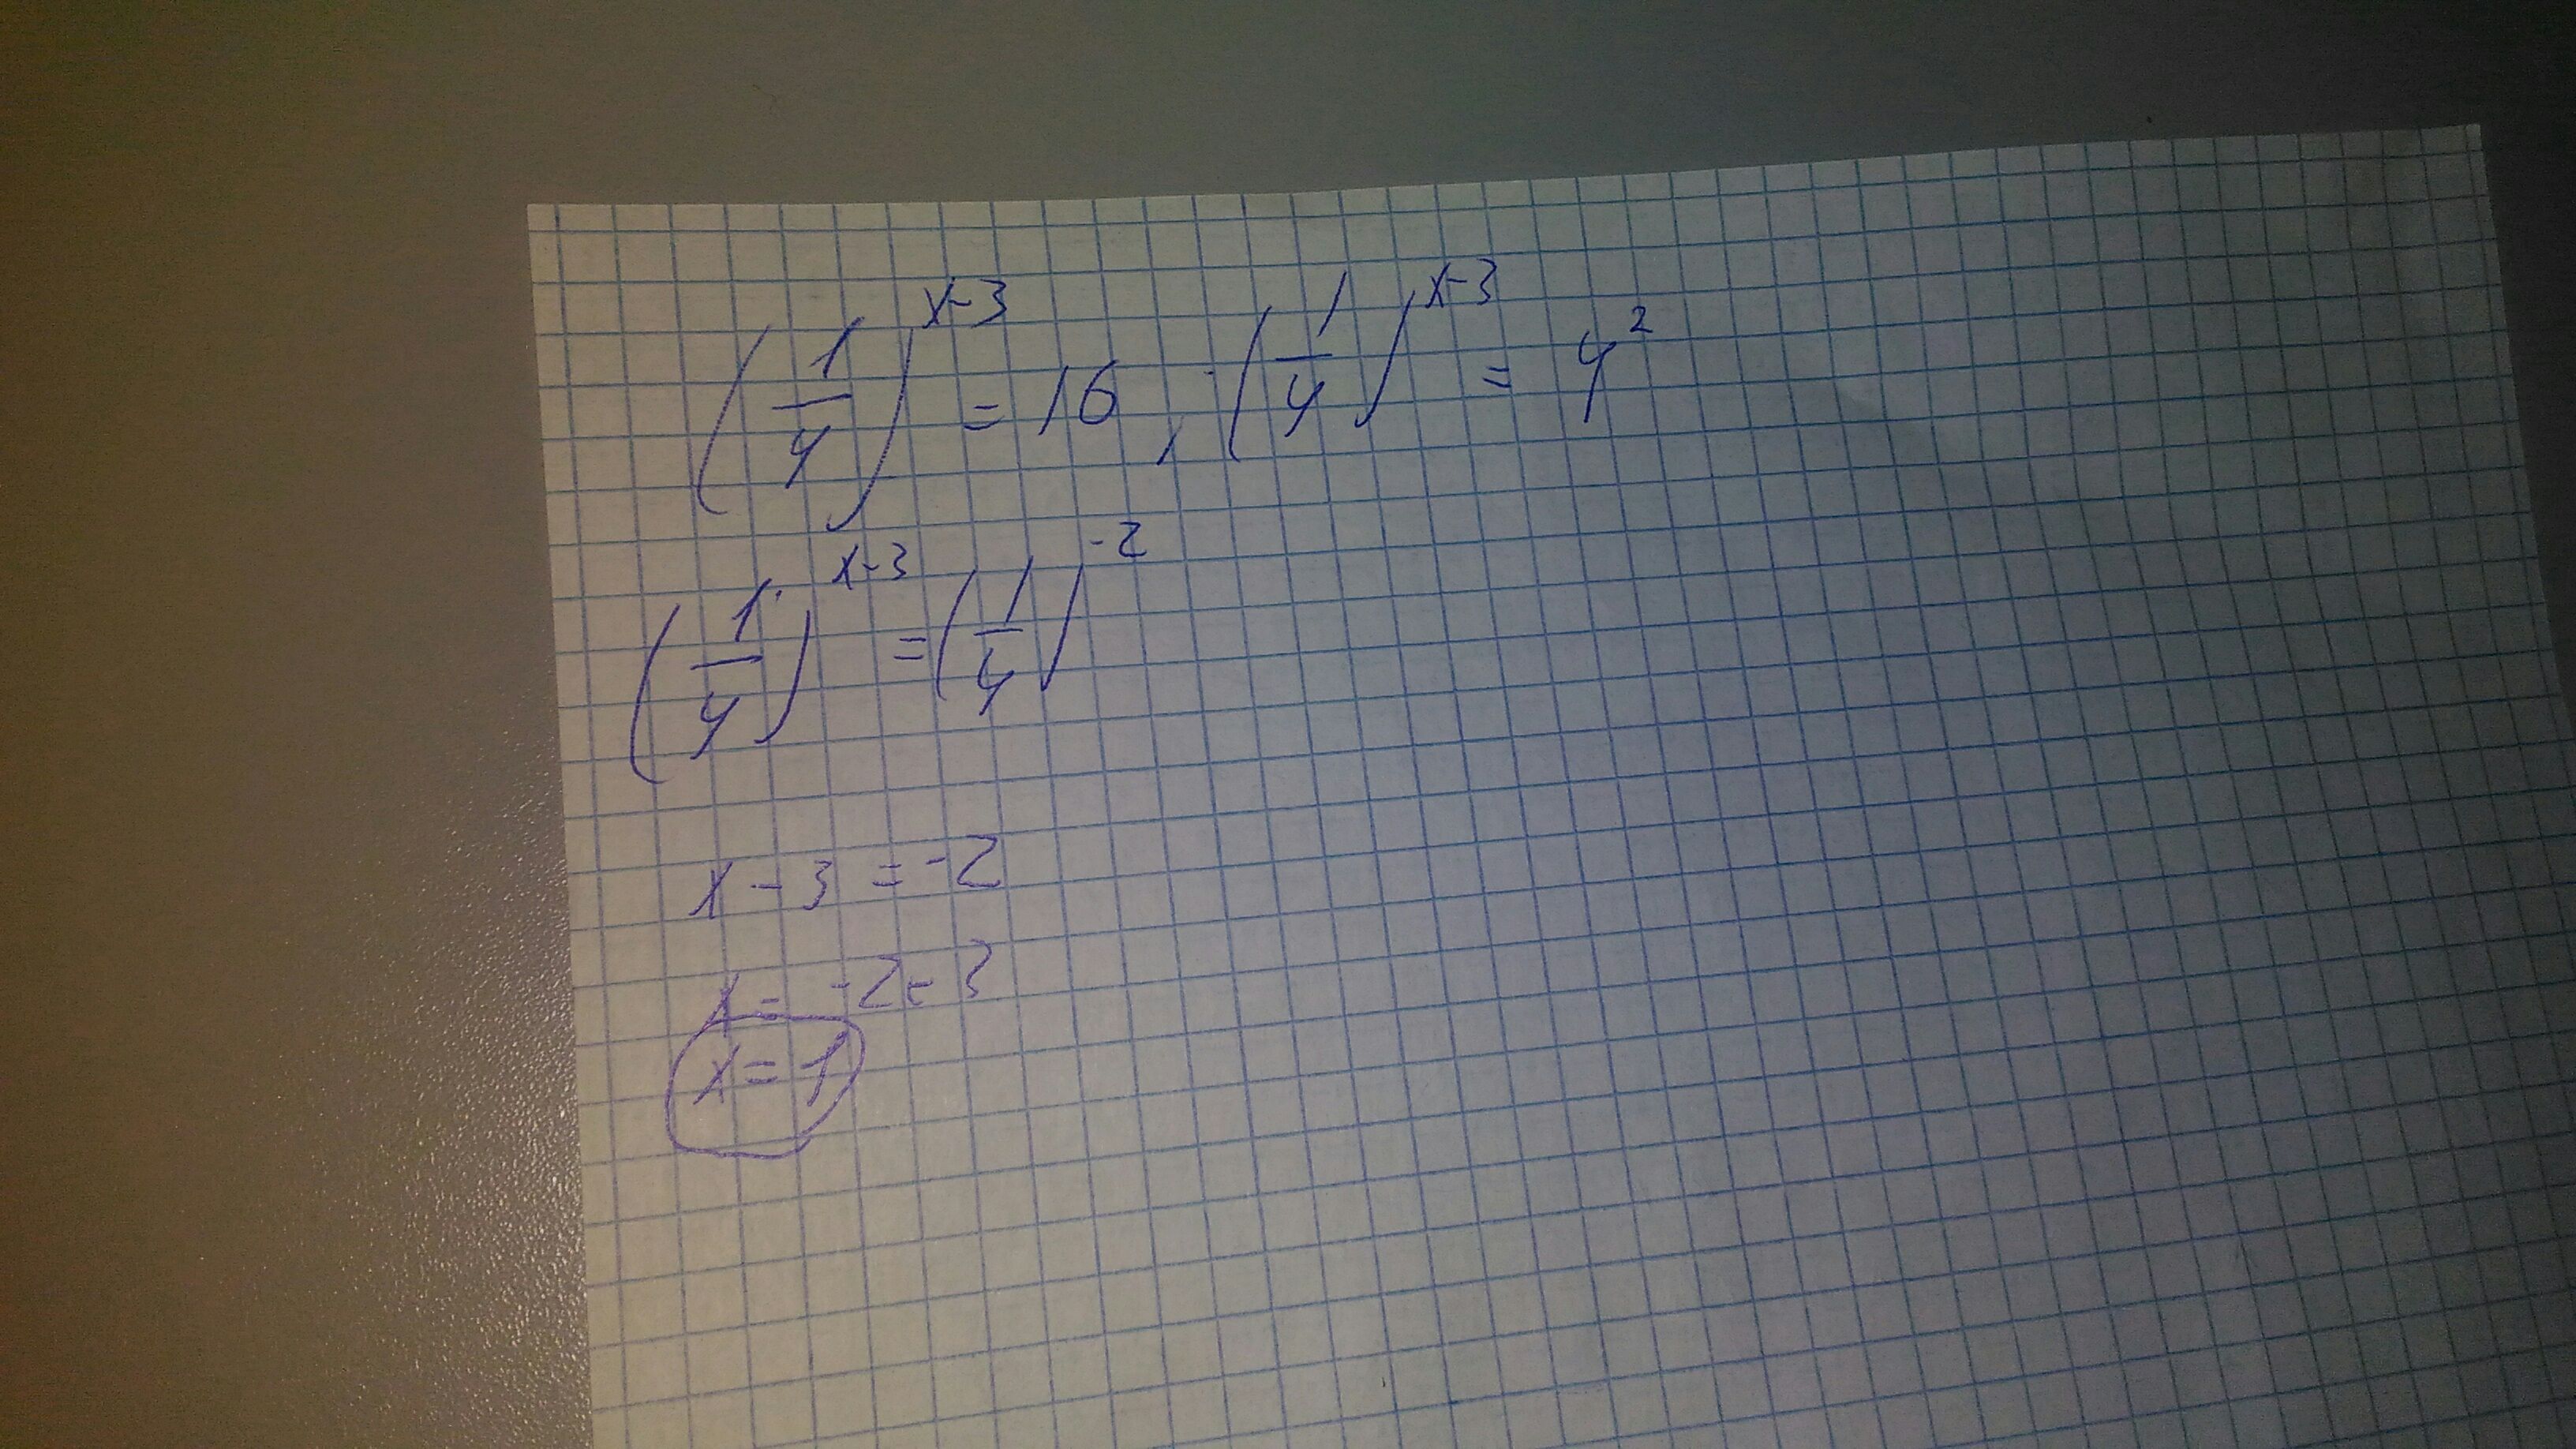 (1/4)^(x-3) = 16, (1/4)^(x-3) = 4^2
(1/4)^(x-3) = (1/4)^(-2)
x - 3 = -2
x = -2+3
x = 1